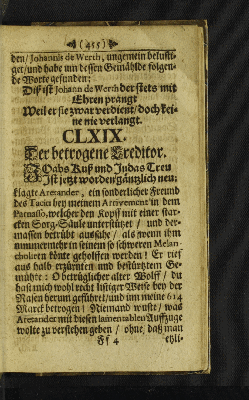 (455)
den / Johannis de Werth, ungemein belusti-
get/ und habe um dessen Gemählde folgen-
de Worte gefunden:
Diß ist Johann de Werth der stets mit
Ehren prangt
Weil er sie zwar verdient/ doch kei-
ne nie verlangt.
CLXIX.
Der betrogene Creditor.
JOabs Kuß und Judas Treu
Ist jetzt worden gäntzlich neu:
klagte Aretander, ein sonderlicher Freund
des Taciti bey meinem Arrivement in dem
Parnasso, welcher den Kopff mit einer star-
cken Sorg-Säule unterstützet / und der-
massen betrübt aussahe/ als wenn ihm
nimmermehr in seinem so schweren Melan-
cholieren könte geholffen werden! Er rief
aus halb erzürnten und bestürtztem Ge-
müthe: O betrüglicher alter Wolff / du
hast mich wohl recht listiger Weise bey der
Nasen herum geführet/ und um meine 614
Marck betrogen! Niemand wuste/ was
Aretander mit diesen lamentablen Auffzuge
wolte zu verstehen geben / ohne/ daß man
Ff 4
etzli-